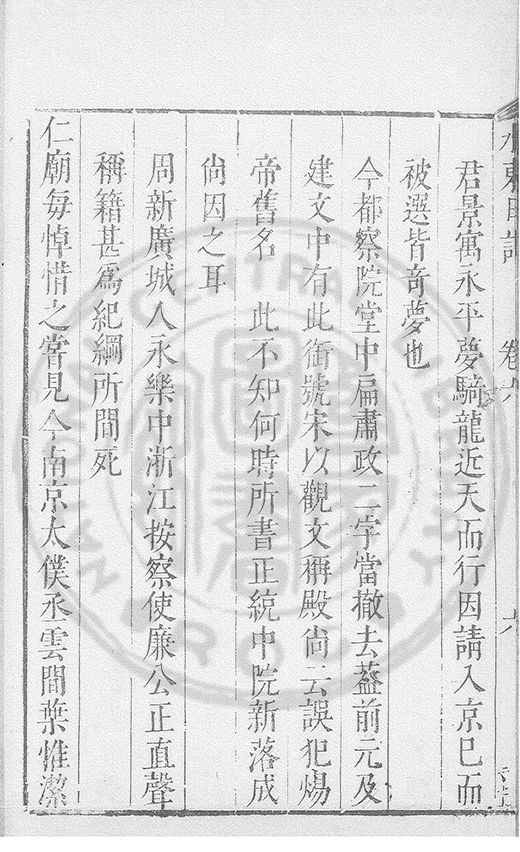 君景寓永平夢騎龍近天而行因請入京巳而
被選皆奇夢也
今都察院堂中扁肅政二字當撤去蓋前元及
建文中有此銜號宋以觀文稱殿尚云誤犯煬
帝舊名　此不知何時所書正統中院新落成
尚因之耳
周新廣城人永樂中浙江按察使廉公正直聲
稱籍甚為紀綱所間死
仁廟每悼惜之嘗見今南京太僕丞雲間葉惟潔